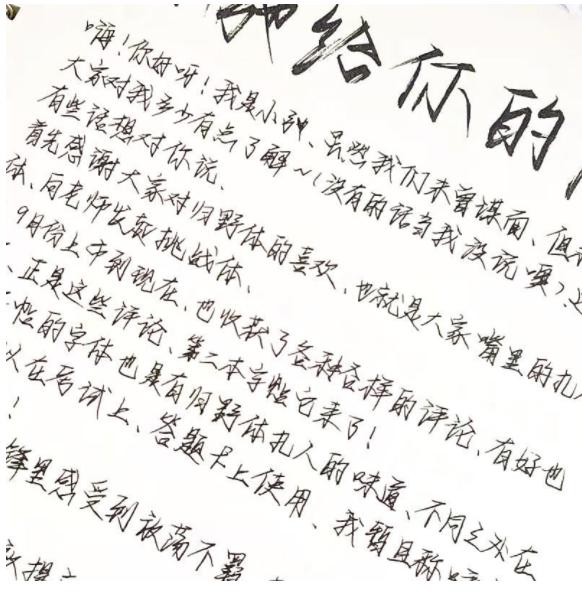 给你的
嗨!你好呀!我是小钟、虽然我们未曾谋面、但
大家对我多少有点了解~(没有的话当我没说噢)
有些话想对你说、
首先感谢大家对归野体的喜欢、也就是大家嘴里的扎
体、向老师发起挑战体、
9月份上市到现在、也收获了各种各样的评论、有好也
、正是这些评论、第二本字帖它来了!
帖的字体也是有归野体扎人的味道、不同之处在
以在考试上、答题卡上使用、我暂且称
!
锋里感受到放荡不羁